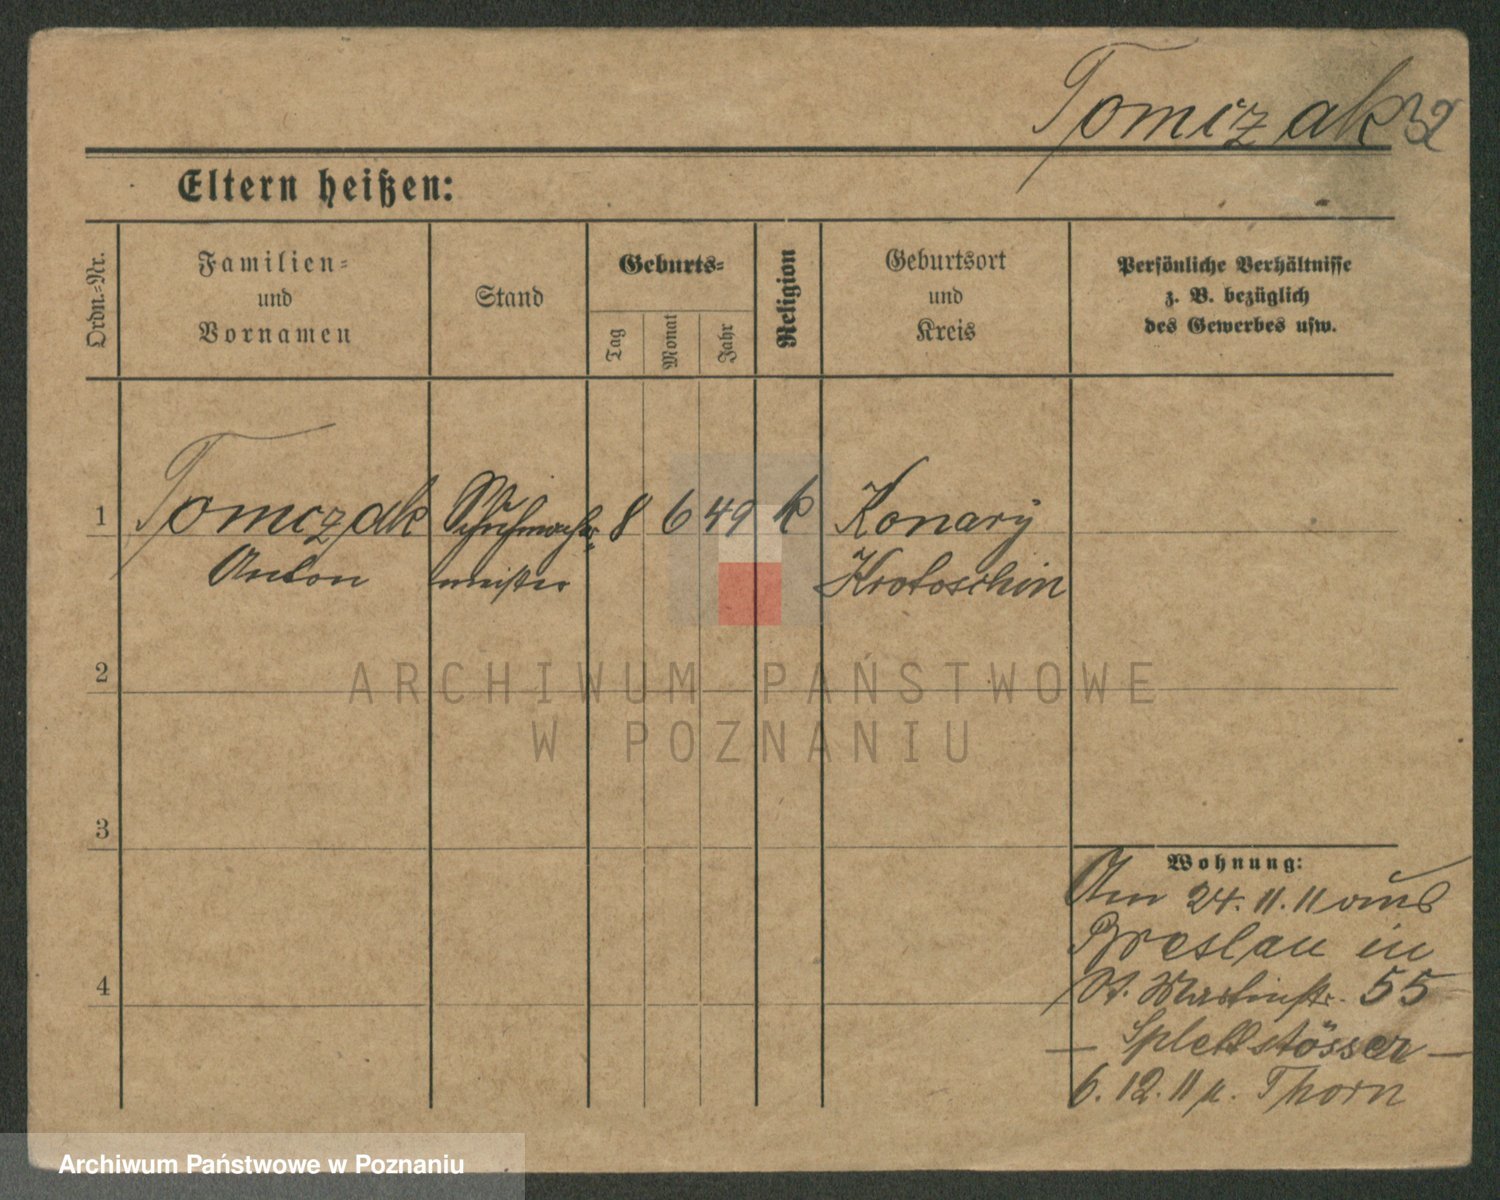 Tomczak 32
Eltern heißen:
Ordn.-Nr.
Familien-
und
Vornamen
Stand
Geburts-
Tag
Monat
Jahr
Religion
Geburtsort
und
Kreis
Persönliche Verhältnisse
z. B. bezüglich
des Gewerbes usw.
1 Tomczak Schuhmacher- 8 6 49 k Konary
Anton meister Krotoschin
2
ARCHIWUM PAŃSTWOWE
W POZNANIU
3
Wohnung:
Am 24.11.11 aus
Breslau in
4 St. Martinstr. 55
— Splettstösser —
6.12.11 n. Thorn
Archiwum Państwowe w Poznaniu